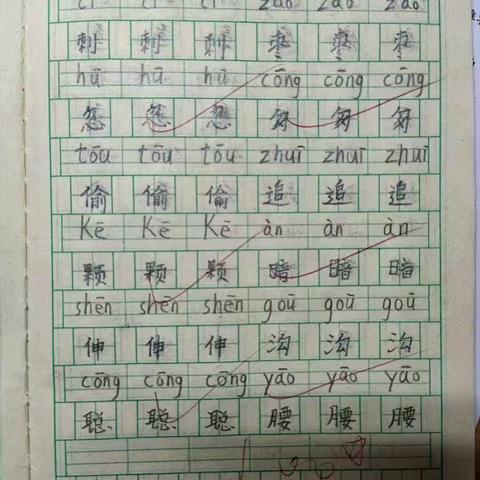 刺 刺 刺 枣 枣 枣
hū hū hū cōng cōng cōng
忽 忽 忽 匆 匆 匆
tōu tōu tōu zhuī zhuī zhuī
偷 偷 偷 追 追 追
Kē Kē Kē àn àn àn
颗 颗 颗 暗 暗 暗
shēn shēn shēn goū goū goū
伸 伸 伸 沟 沟 沟
cōng cōng cōng yāo yāo yāo
聪 聪 聪 腰 腰 腰